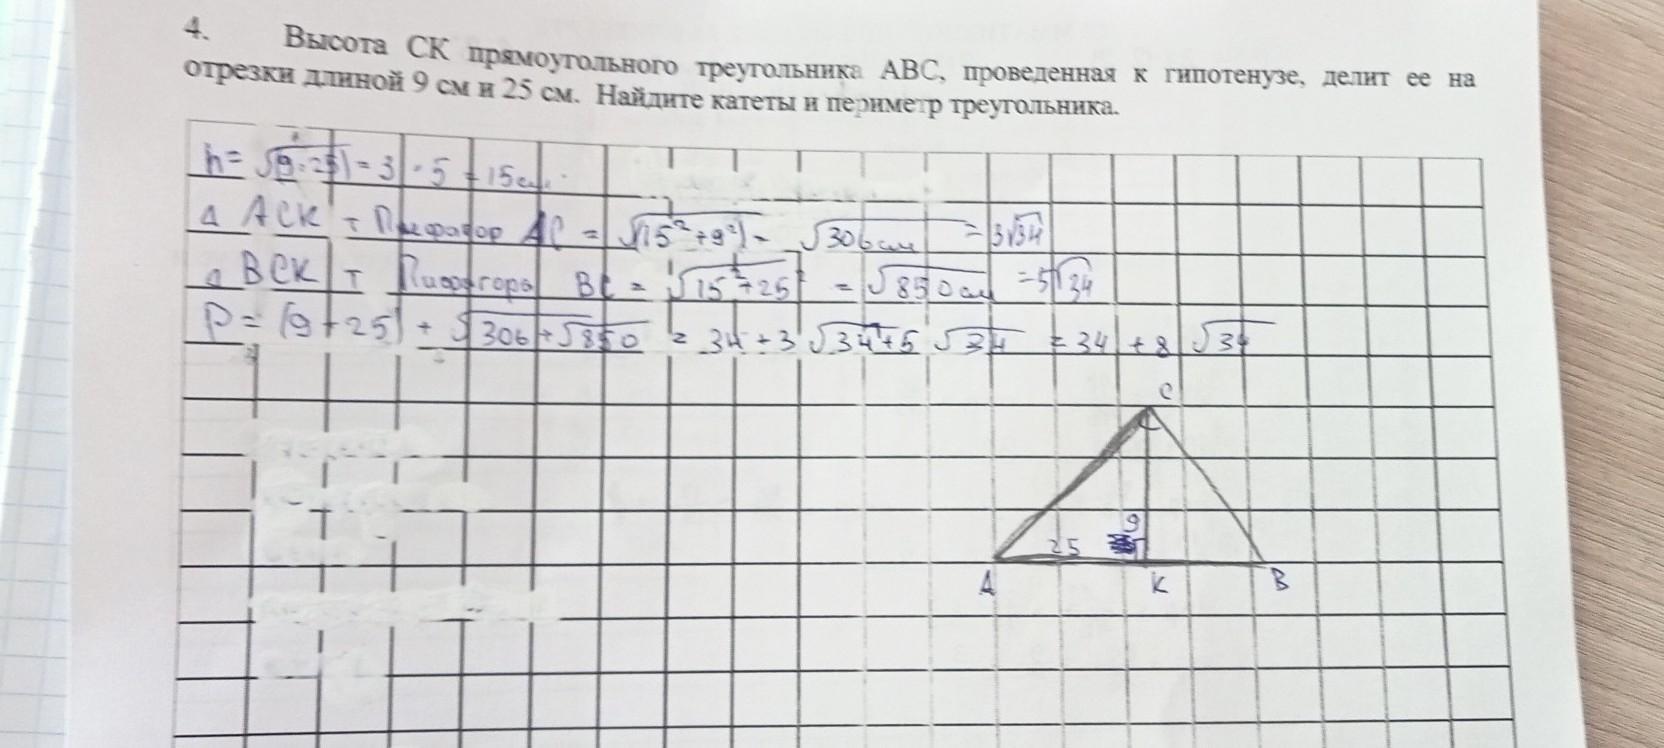 4. Высота СК прямоугольного треугольника АВС, проведенная к гипотенузе, делит ее на
отрезки длиной 9 см и 25 см. Найдите катеты и периметр треугольника.
h = √(9·25) = 3 · 5 = 15см.
Δ АСК т Пифагор АС = √(15²+9²) = √306 см = 3√34
Δ ВСК т Пифагора ВС = √15²+25² = √850 см = 5√34
P = (9+25) + √306+√850 = 34+3√34+5√34 = 34+8√34
С
9
25
А К В